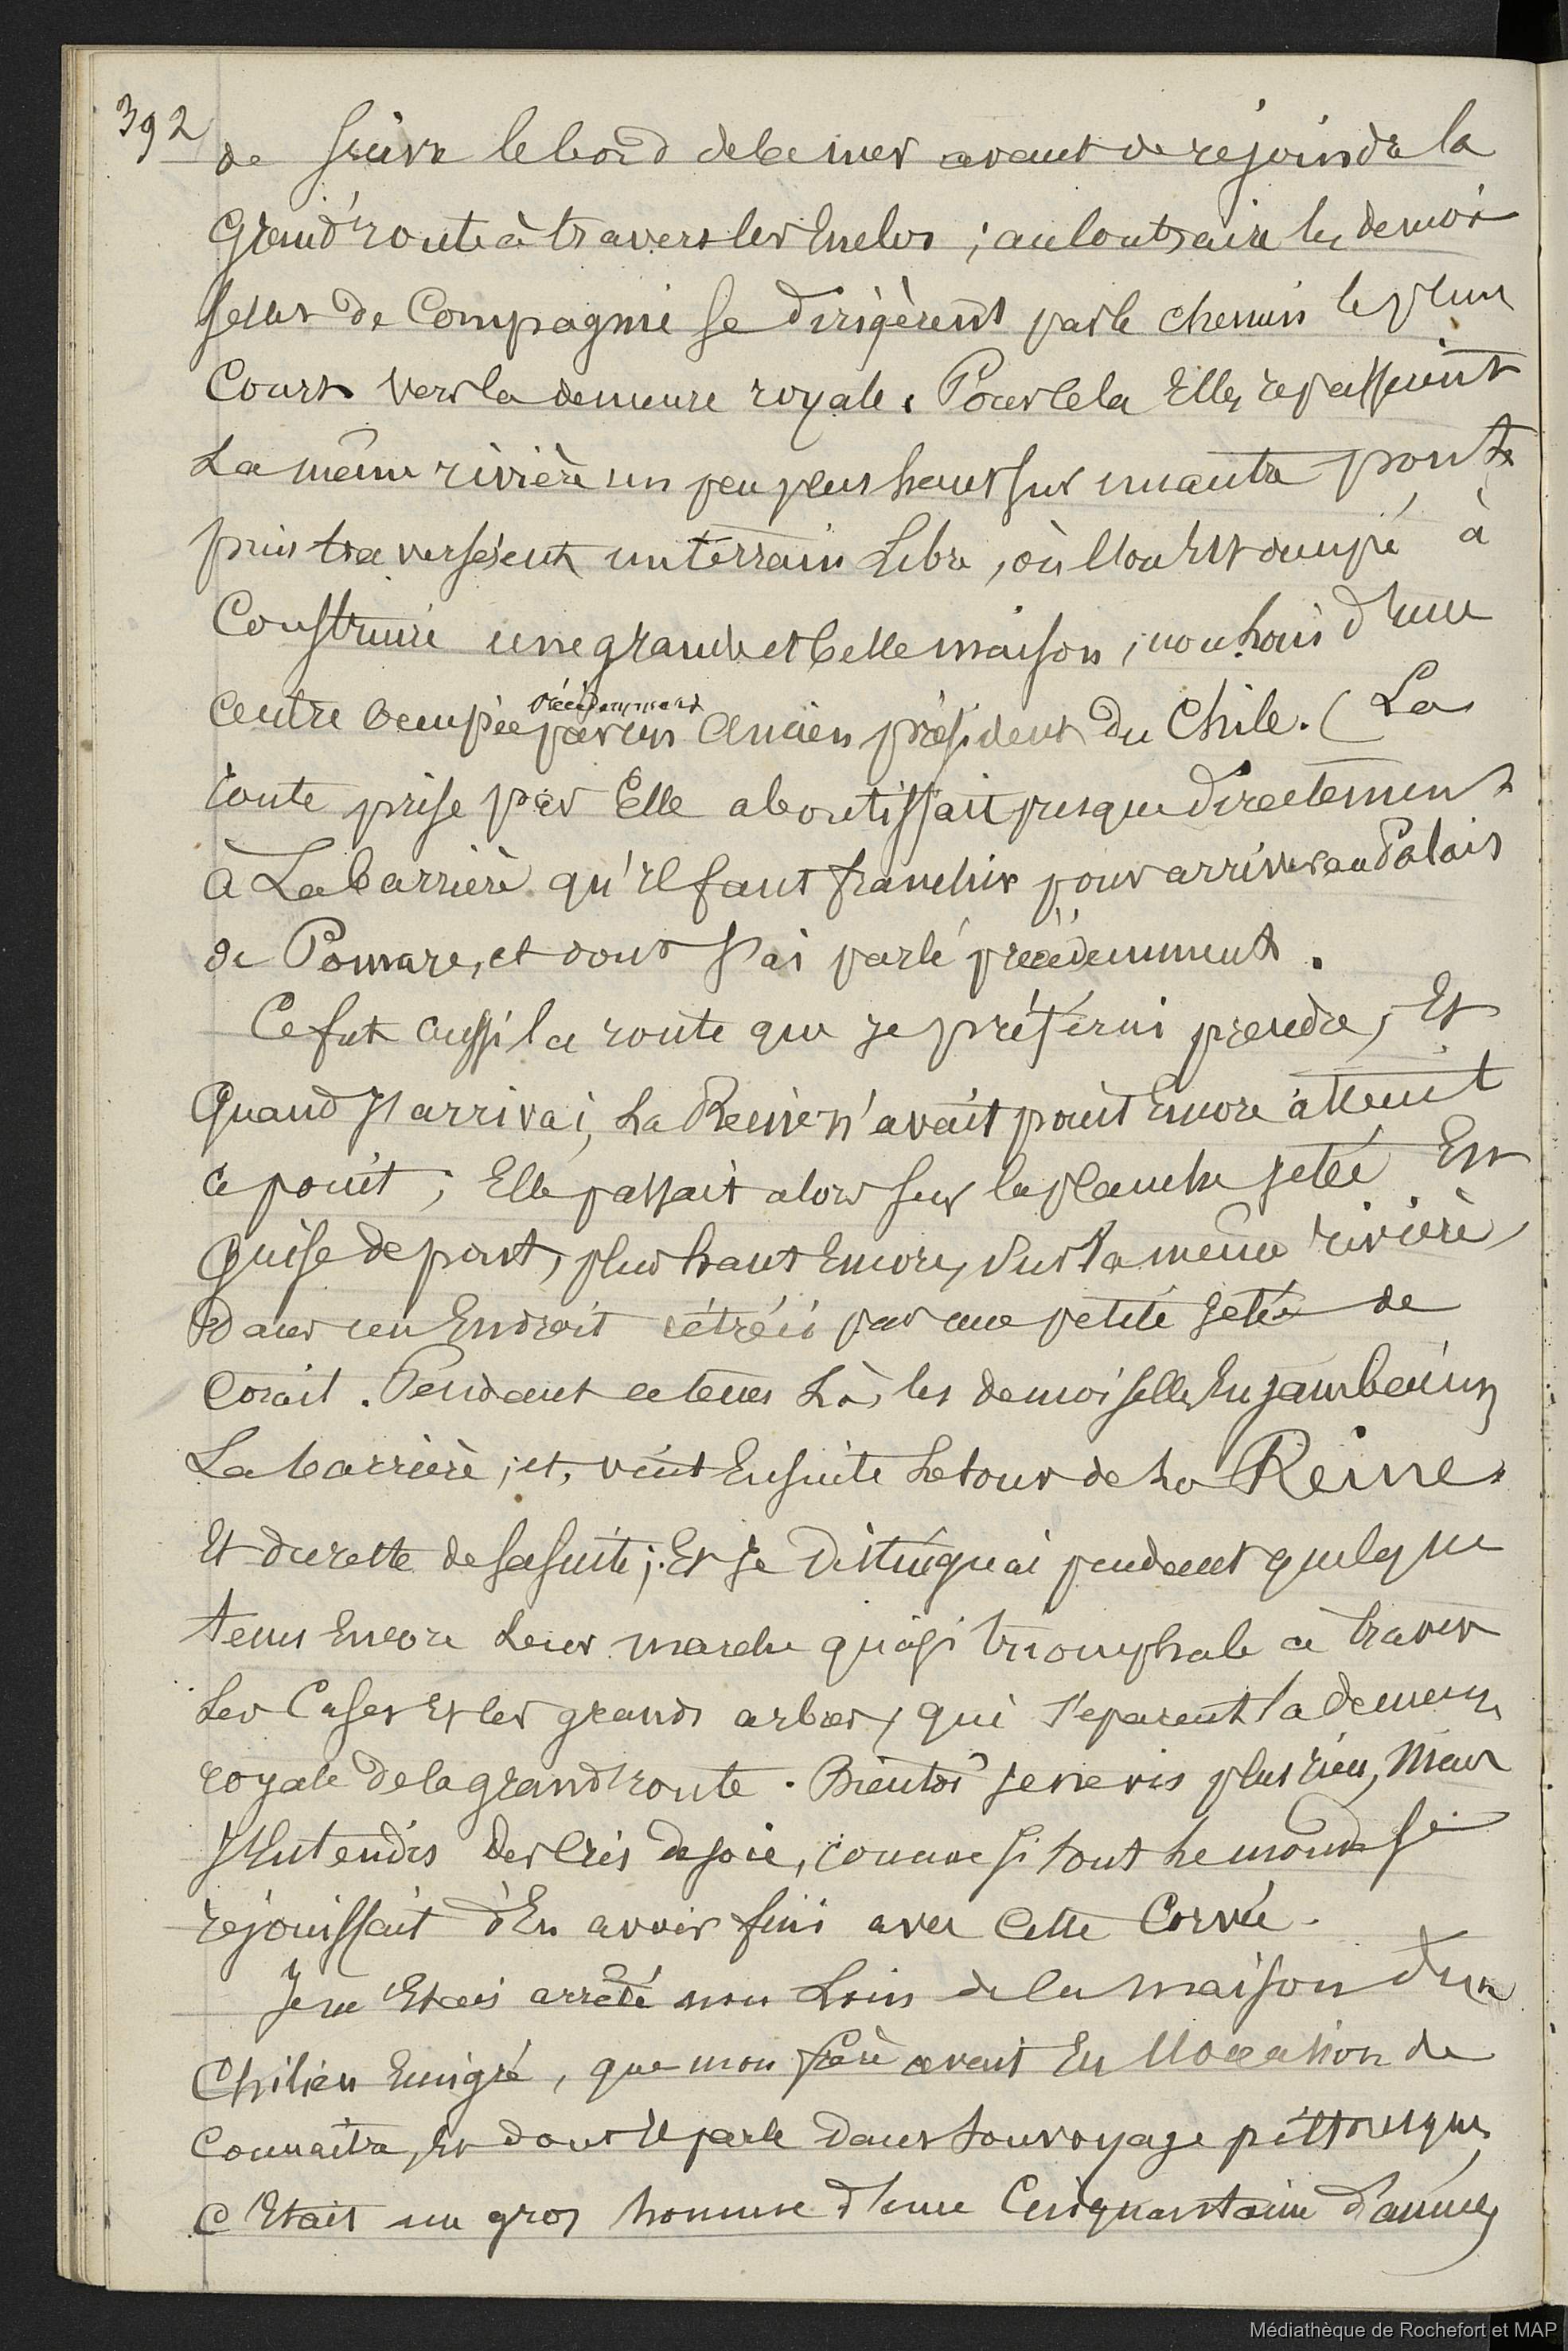 392
de suivre le bord de la mer avant de rejoindre la
Grand'route à travers les Enclos ; au Contraire les demoi
selles de Compagnie se dirigèrent par le chemin le plus
Court vers la demeure royale. Pour Cela Elles repassèrent
La même rivière un peu plus haut sur un autre pont
puis traversèrent un terrain Libre, où l'on Est occupé à
Construire une grande et belle maison, non loin d'une
autre occupée précédemment par un Ancien président du Chile. (La
route prise par Elle aboutissait presque directement
à La barrière qu'il faut franchir pour arriver au Palais
de Pomare, et dont J'ai parlé précédemment.
Ce fut aussi la route que je préférai prendre, Et
Quand J'arrivai, La Reine n'avait point Encore atteint
ce point ; Elle passait alors sur la planche jetée En
Guise de pont, plus haut Encore, sur la même rivière,
Dans un Endroit rétréci par une petite jetée de
Corail. Pendant ce tems Là, les demoiselles Enjambaient
La barrière ; et, vint Ensuite Le tour de La Reine
Et du reste de sa suite ; Et je Distinguai pendant quelque
tems Encore Leur marche quasi triomphale à travers
Les Cases Et les grands arbres, qui séparent la demeure
royale de la grand'route. Bientôt je ne vis plus rien, Mais
J'Entendis des Cris de joie, comme si tout Le monde se
réjouissait d'En avoir fini avec Cette Corvée.
Je me Etais arrêté non Loin de la maison d'un
Chilien Emigré, que mon frère avait Eu l'Occasion de
Connaître, Et dont il parle dans son voyage pittoresque,
C'Etait un gros homme d'une Cinquantaine d'années
Médiathèque de Rochefort et MAP